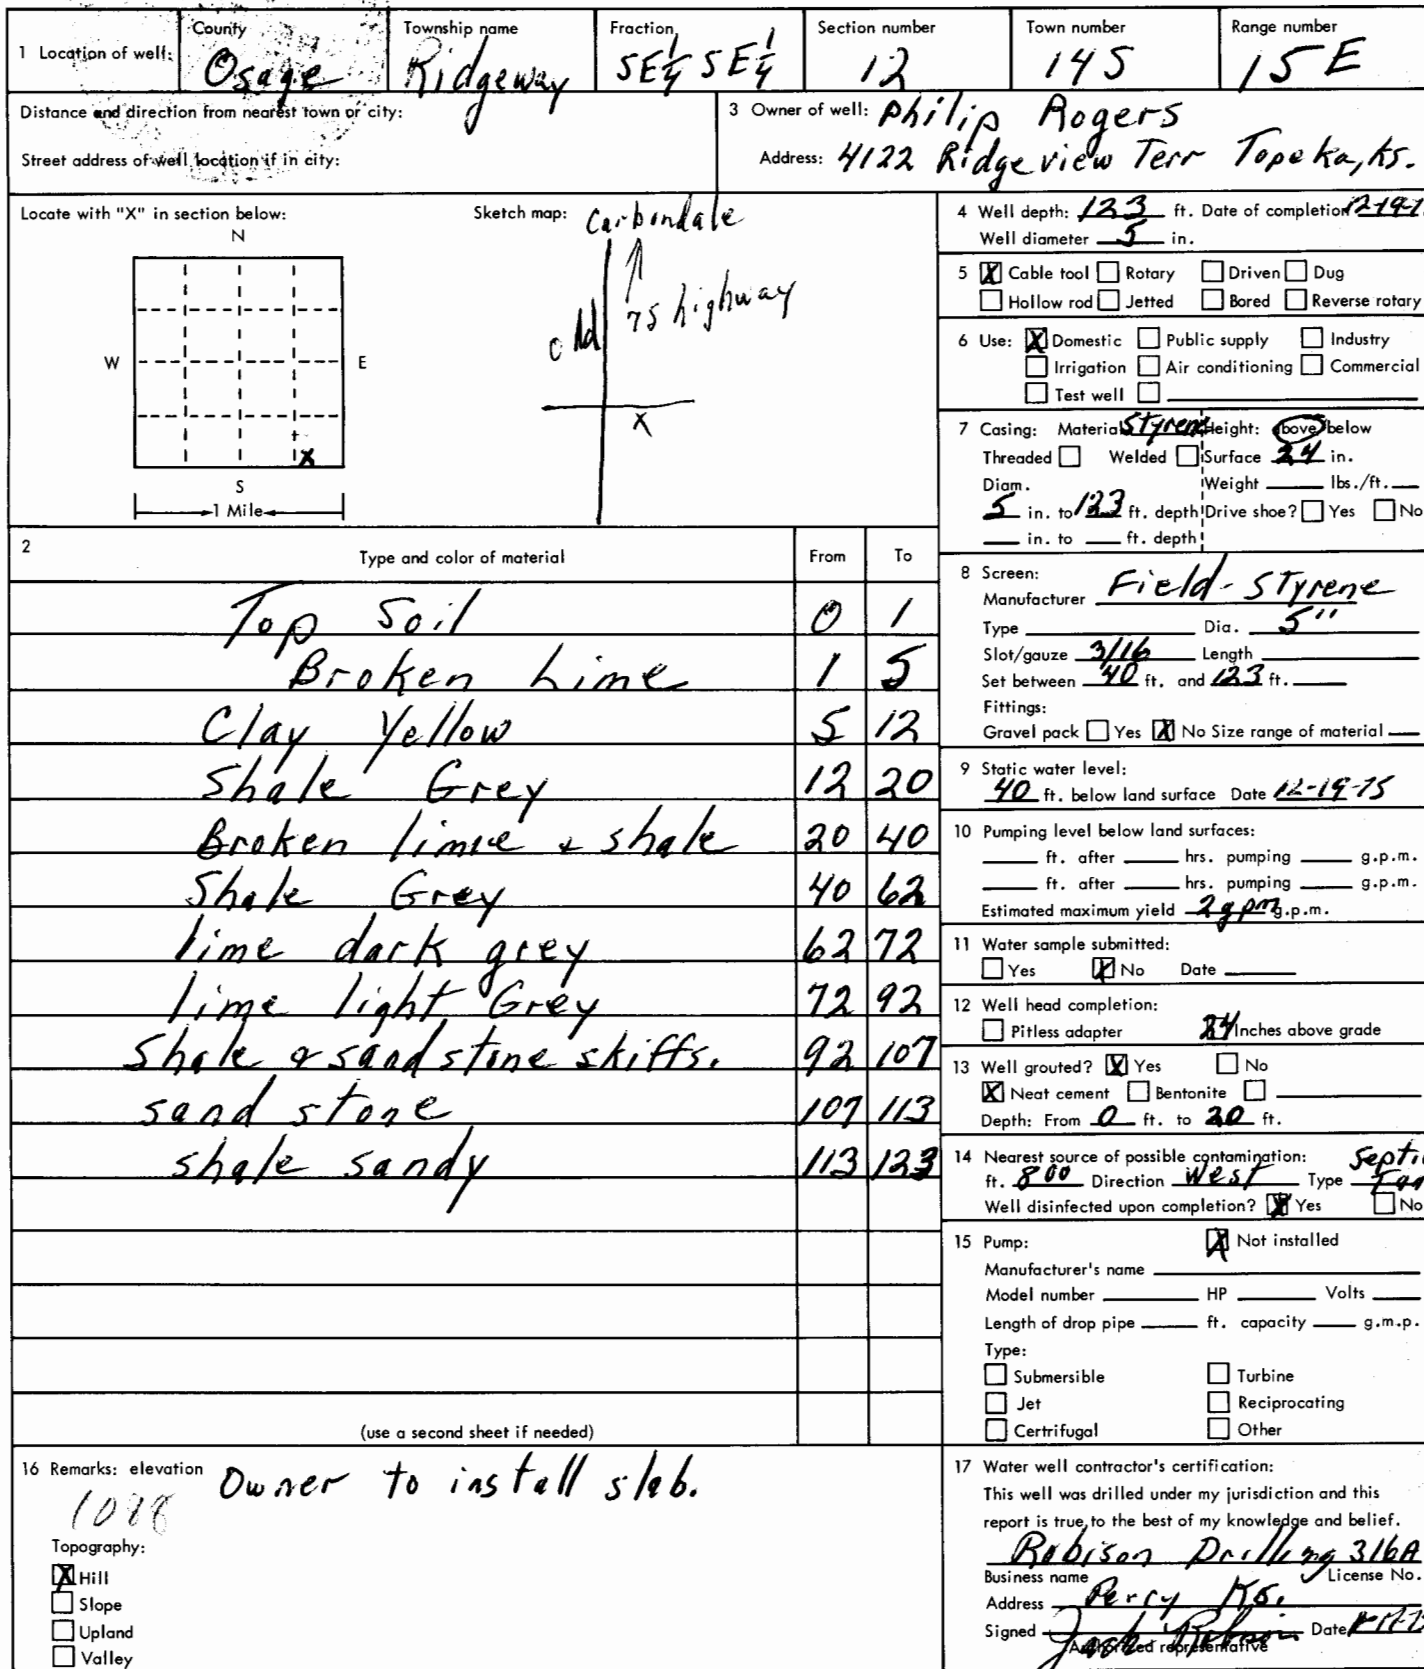 1 Location of well: County Osage Township name Ridgeway Fraction SE 1/4 SE 1/4 Section number 12 Town number 14S Range number 15E
Distance and direction from nearest town or city:
Street address of well location if in city:
3 Owner of well: Philip Rogers
Address: 4122 Ridgeview Terr Topeka, Ks.
Locate with "X" in section below:
N
W E
X
S
1 Mile
Sketch map: Carbondale
old 75 highway
X
4 Well depth: 123 ft. Date of completion 12-19-7
Well diameter 5 in.
5 X Cable tool Rotary Driven Dug
Hollow rod Jetted Bored Reverse rotary
6 Use: X Domestic Public supply Industry
Irrigation Air conditioning Commercial
Test well
7 Casing: Material Styrene Height: above/below
Threaded Welded Surface 24 in.
Diam. Weight lbs./ft.
5 in. to 123 ft. depth Drive shoe? Yes No
in. to ft. depth
2 Type and color of material From To
Top Soil 0 1
Broken Lime 1 5
Clay Yellow 5 12
Shale Grey 12 20
Broken lime & shale 20 40
Shale Grey 40 62
lime dark grey 62 72
lime light Grey 72 92
Shale & sand stone skiffs. 92 107
sand stone 107 113
shale sandy 113 123
(use a second sheet if needed)
8 Screen:
Manufacturer Field-Styrene
Type Dia. 5"
Slot/gauze 3/16 Length
Set between 40 ft. and 123 ft.
Fittings:
Gravel pack Yes X No Size range of material
9 Static water level:
40 ft. below land surface Date 12-19-75
10 Pumping level below land surfaces:
ft. after hrs. pumping g.p.m.
ft. after hrs. pumping g.p.m.
Estimated maximum yield 2 gpm g.p.m.
11 Water sample submitted:
Yes X No Date
12 Well head completion:
Pitless adapter 24 Inches above grade
13 Well grouted? X Yes No
X Neat cement Bentonite
Depth: From 0 ft. to 20 ft.
14 Nearest source of possible contamination:
ft. 800 Direction West Type Septi Tan
Well disinfected upon completion? X Yes No
15 Pump: X Not installed
Manufacturer's name
Model number HP Volts
Length of drop pipe ft. capacity g.m.p.
Type:
Submersible Turbine
Jet Reciprocating
Certrifugal Other
16 Remarks: elevation Owner to install slab.
Topography:
X Hill
Slope
Upland
Valley
17 Water well contractor's certification:
This well was drilled under my jurisdiction and this
report is true to the best of my knowledge and belief.
Robison Drilling 316A
Business name License No.
Address Perry Ks.
Signed Jack Robison Date
Authorized representative